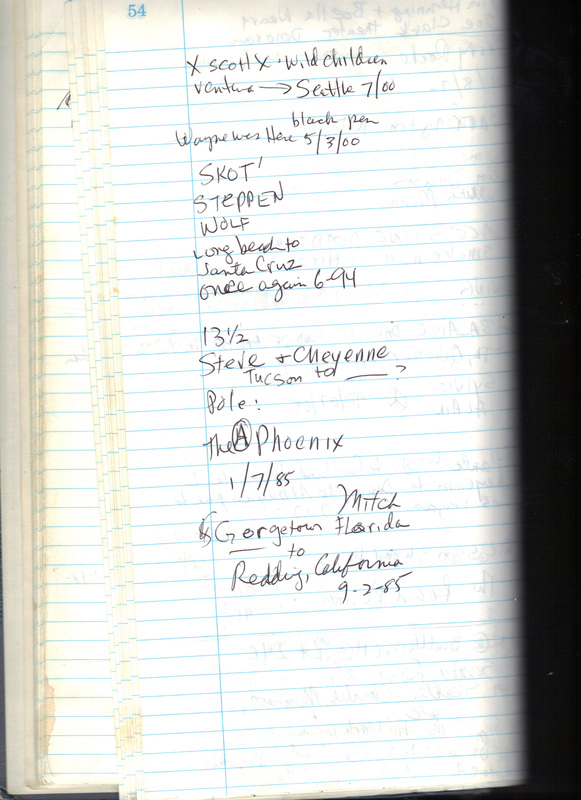 54
X scott X · Wild children
ventura → Seattle 7/00
black pen
Wayne was Here 5/3/00
SKOT'
STEPPEN
WOLF
Long beach to
Santa Cruz
once again 6-94
13½
Steve + Cheyenne
Tucson to ___ ?
Pole:
The (A) Phoenix
1/7/85
Mitch
Georgetown Florida
to
Redding, California
9-2-85